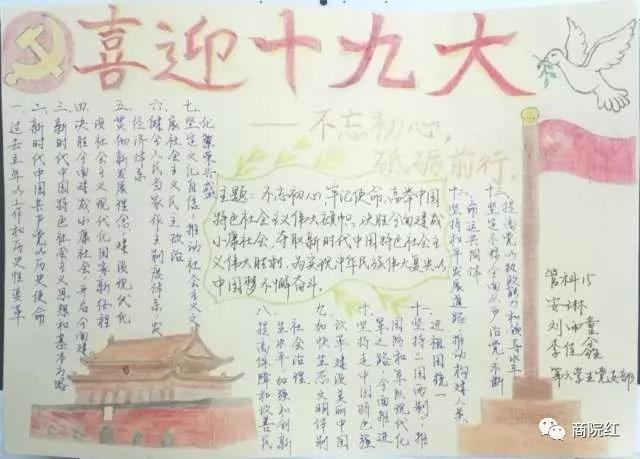 喜迎十九大
——不忘初心,
砥砺前行。
一、过去五年的工作和历史性变革
二、新时代中国共产党的历史使命
三、新时代中国特色社会主义思想和基本方略
四、决胜全面建成小康社会,开启全面建
设社会主义现代化国家新征程
五、贯彻新发展理念,建设现代化
经济体系
六、健全人民当家作主制度体系,发
展社会主义民主政治
七、坚定文化自信,推动社会主义文
化繁荣兴盛
主题:不忘初心,牢记使命,高举中国
特色社会主义伟大旗帜,决胜全面建成
小康社会,夺取新时代中国特色社会主
义伟大胜利,为实现中华民族伟大复兴的
中国梦不懈奋斗。
八、提高保障和改善民
生水平,加强和创新
社会治理
九、加快生态文明体制
改革,建设美丽中国
十、坚持走中国特色强
军之路,全面推进
国防和军队现代化
十一、坚持一国两制,推
进祖国统一
十二、坚持和平发展道路,推动构建人类
命运共同体
十三、坚定不移全面从严治党,不断
提高党的执政能力和领导水平
管科15
安琳
刘雨童
李佳鑫
第六学生党支部
商院红